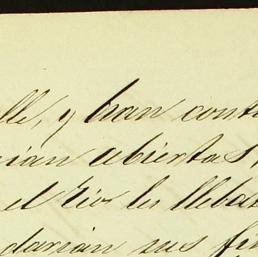 lle, y han cont
rian abiertas
el Rio les lleba
darian sus fin